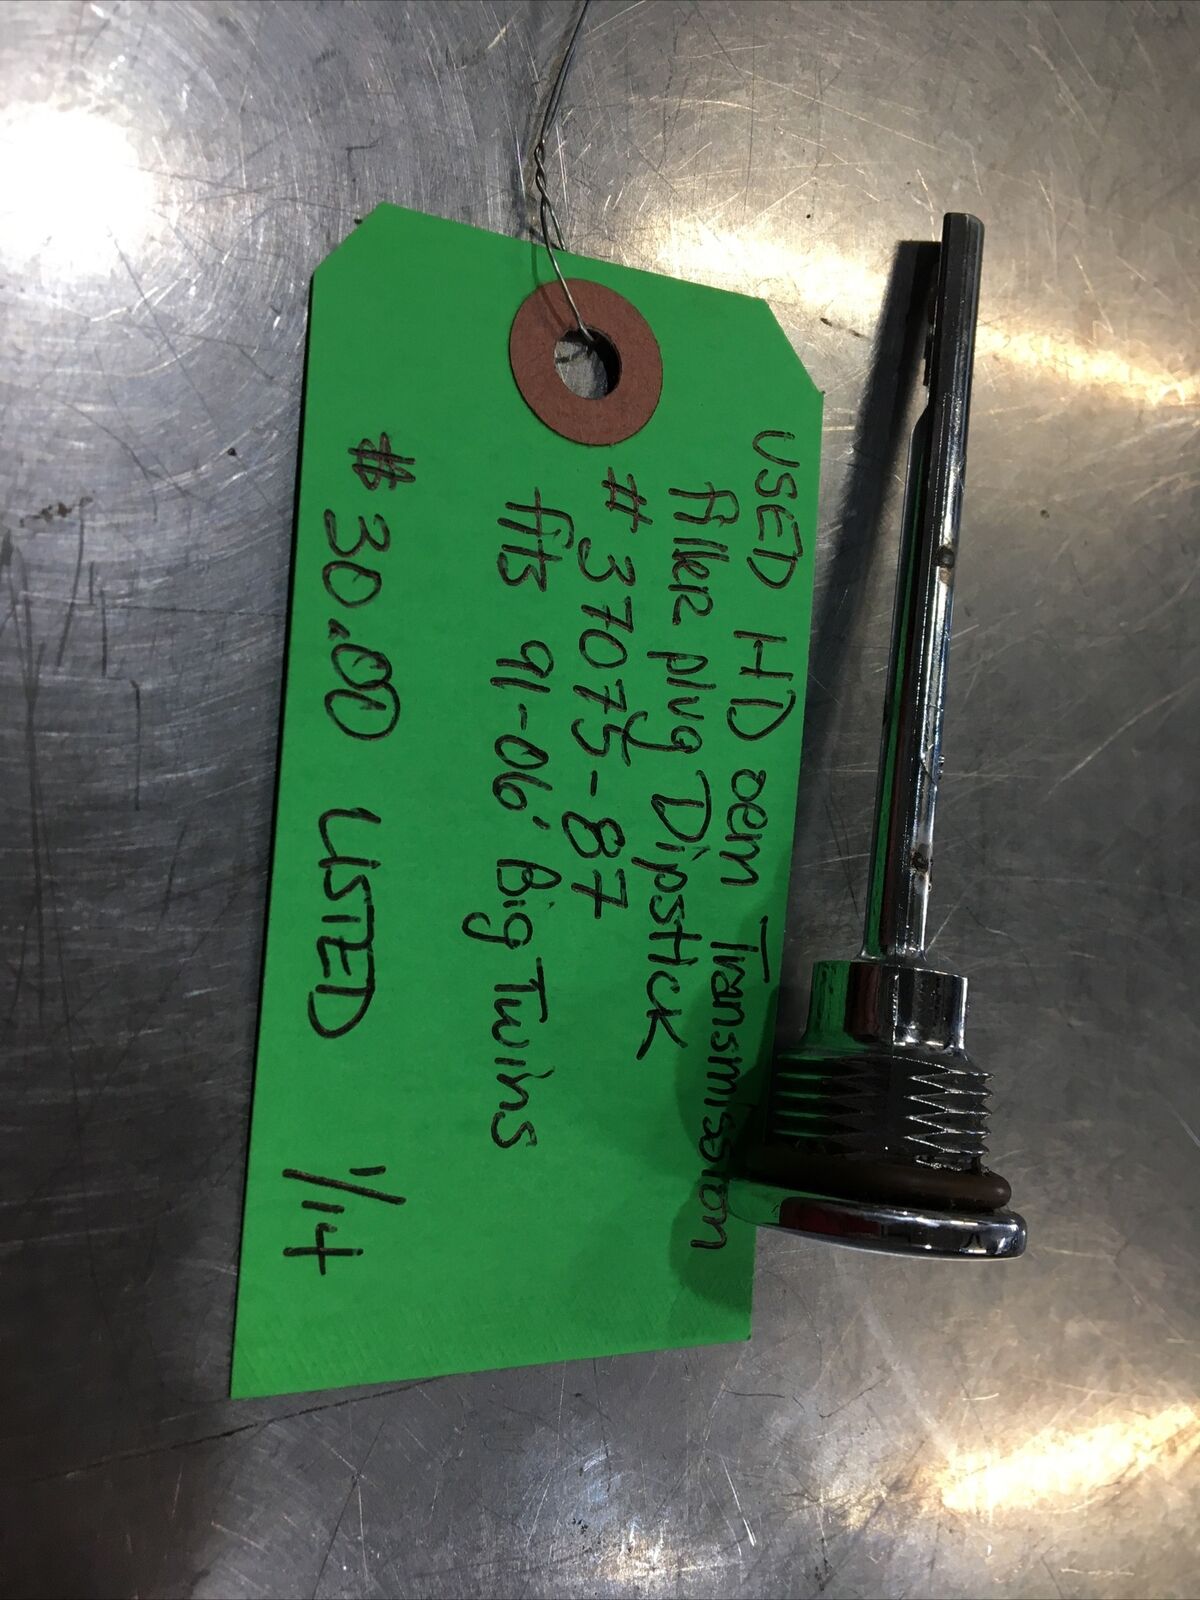 USED HD oem Transmission
filler plug Dipstick
# 37075-87
fits 91-06' Big Twins
$ 30.00 LISTED 1/14